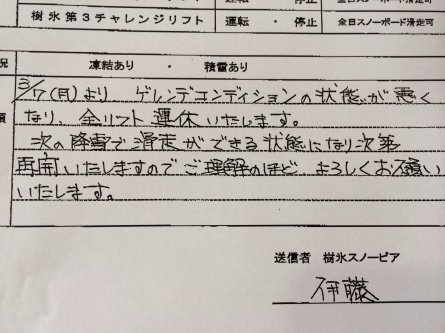 樹氷第３チャレンジリフト 運転・停止 全日スノーボード滑走可
況 凍結あり・積雪あり
3/7(月)より ゲレンデコンディションの状態が悪く
なり、全リフト運休いたします。
次の降雪で滑走ができる状態になり次第
再開いたしますのでご理解のほど よろしくお願い
いたします。
送信者 樹氷スノーピア
伊藤